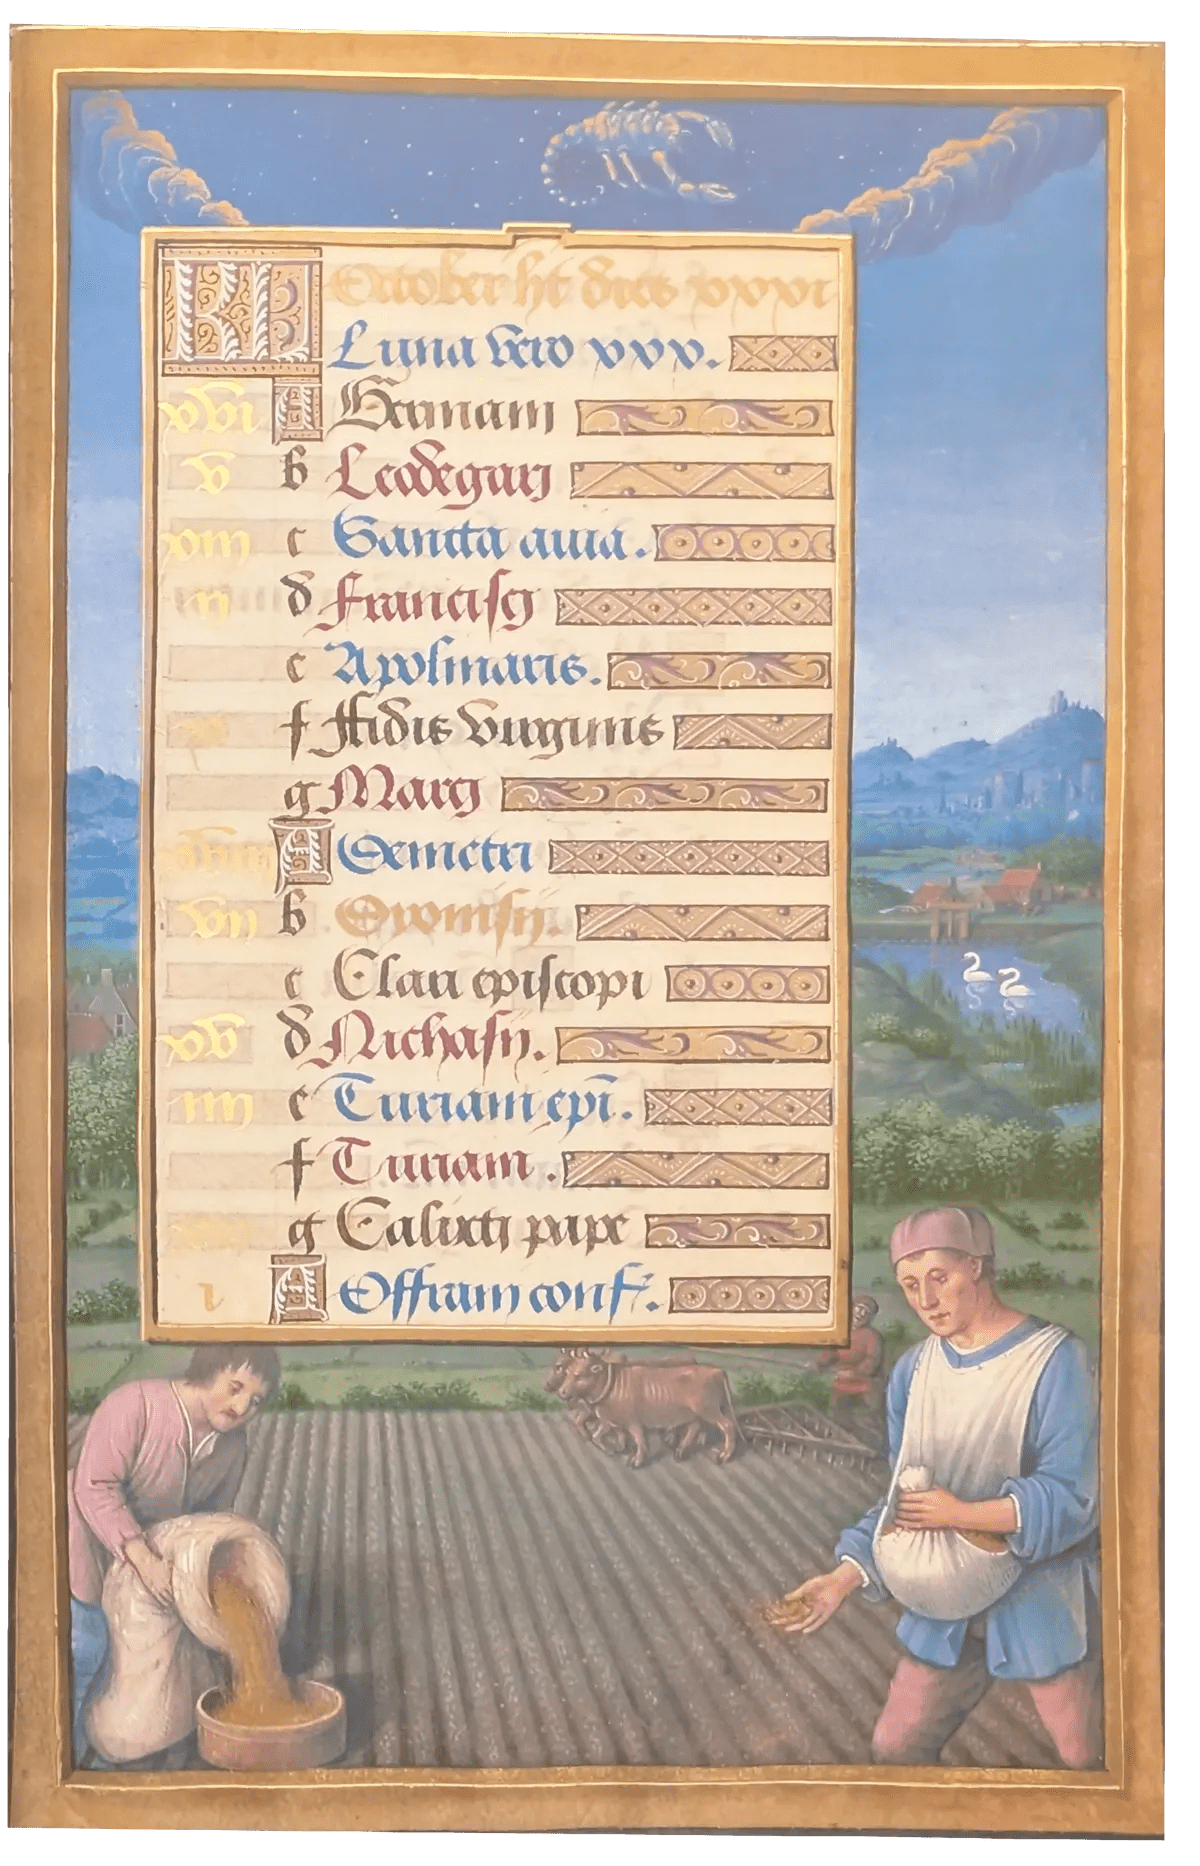 KL October ht dies xxxi
Luna vero xxx.
xvi A Germani
v b Leodegarij
xiii c Sancta auia.
ii d Francisci
e Apolinaris.
f Fidis virginis
g Marci
A Demetri
vii b Dionisij.
c Clari episcopi
xv d Nichasij.
iiii e Turiani epi.
f Turiani.
g Calixti pape
i A Offrani conf.